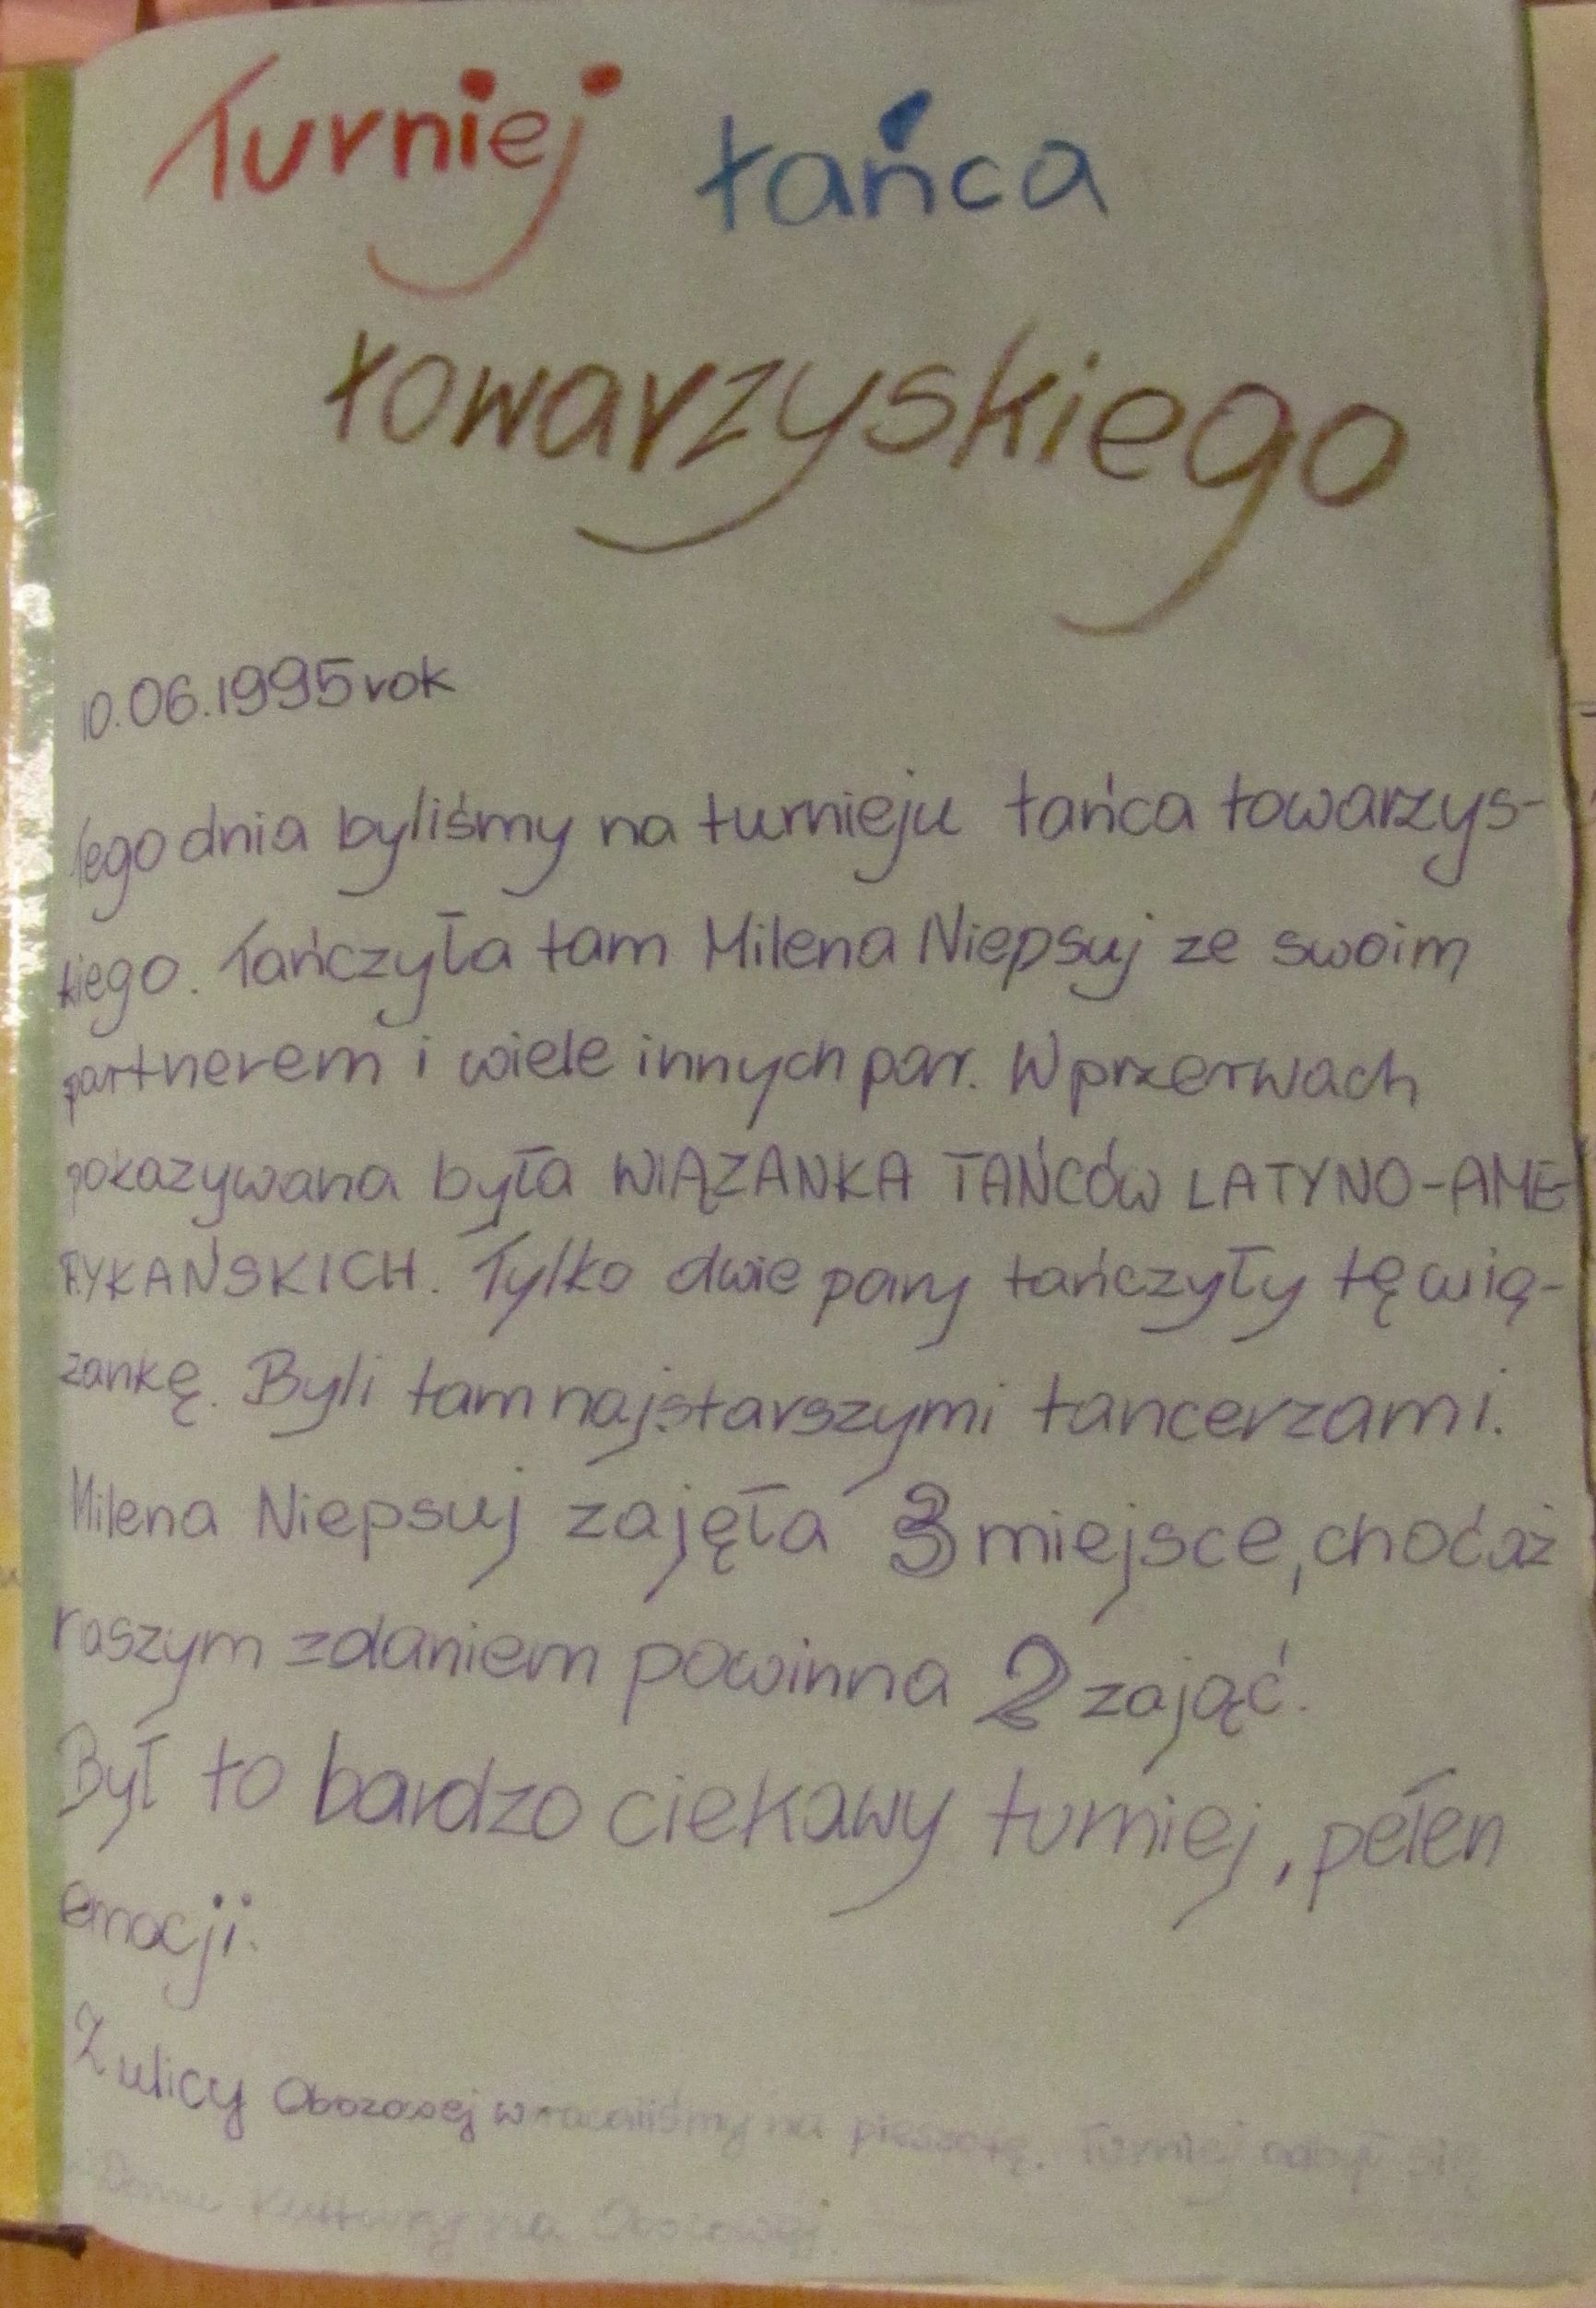 Turniej tańca
towarzyskiego
10.06.1995 rok
Tego dnia byliśmy na turnieju tańca towarzys-
kiego. Tańczyła tam Milena Niepsuj ze swoim
partnerem i wiele innych par. W przerwach
pokazywana była WIĄZANKA TAŃCÓW LATYNO-AME-
RYKAŃSKICH. Tylko dwie pary tańczyły tę wią-
zankę. Byli tam najstarszymi tancerzami.
Milena Niepsuj zajęła 3 miejsce, choćaż
naszym zdaniem powinna 2 zająć.
Był to bardzo ciekawy turniej, pełen
emocji.
Z ulicy Obozowej wracaliśmy na pieszotę. Turniej odbył się
Domu Kultury na Obozowej.